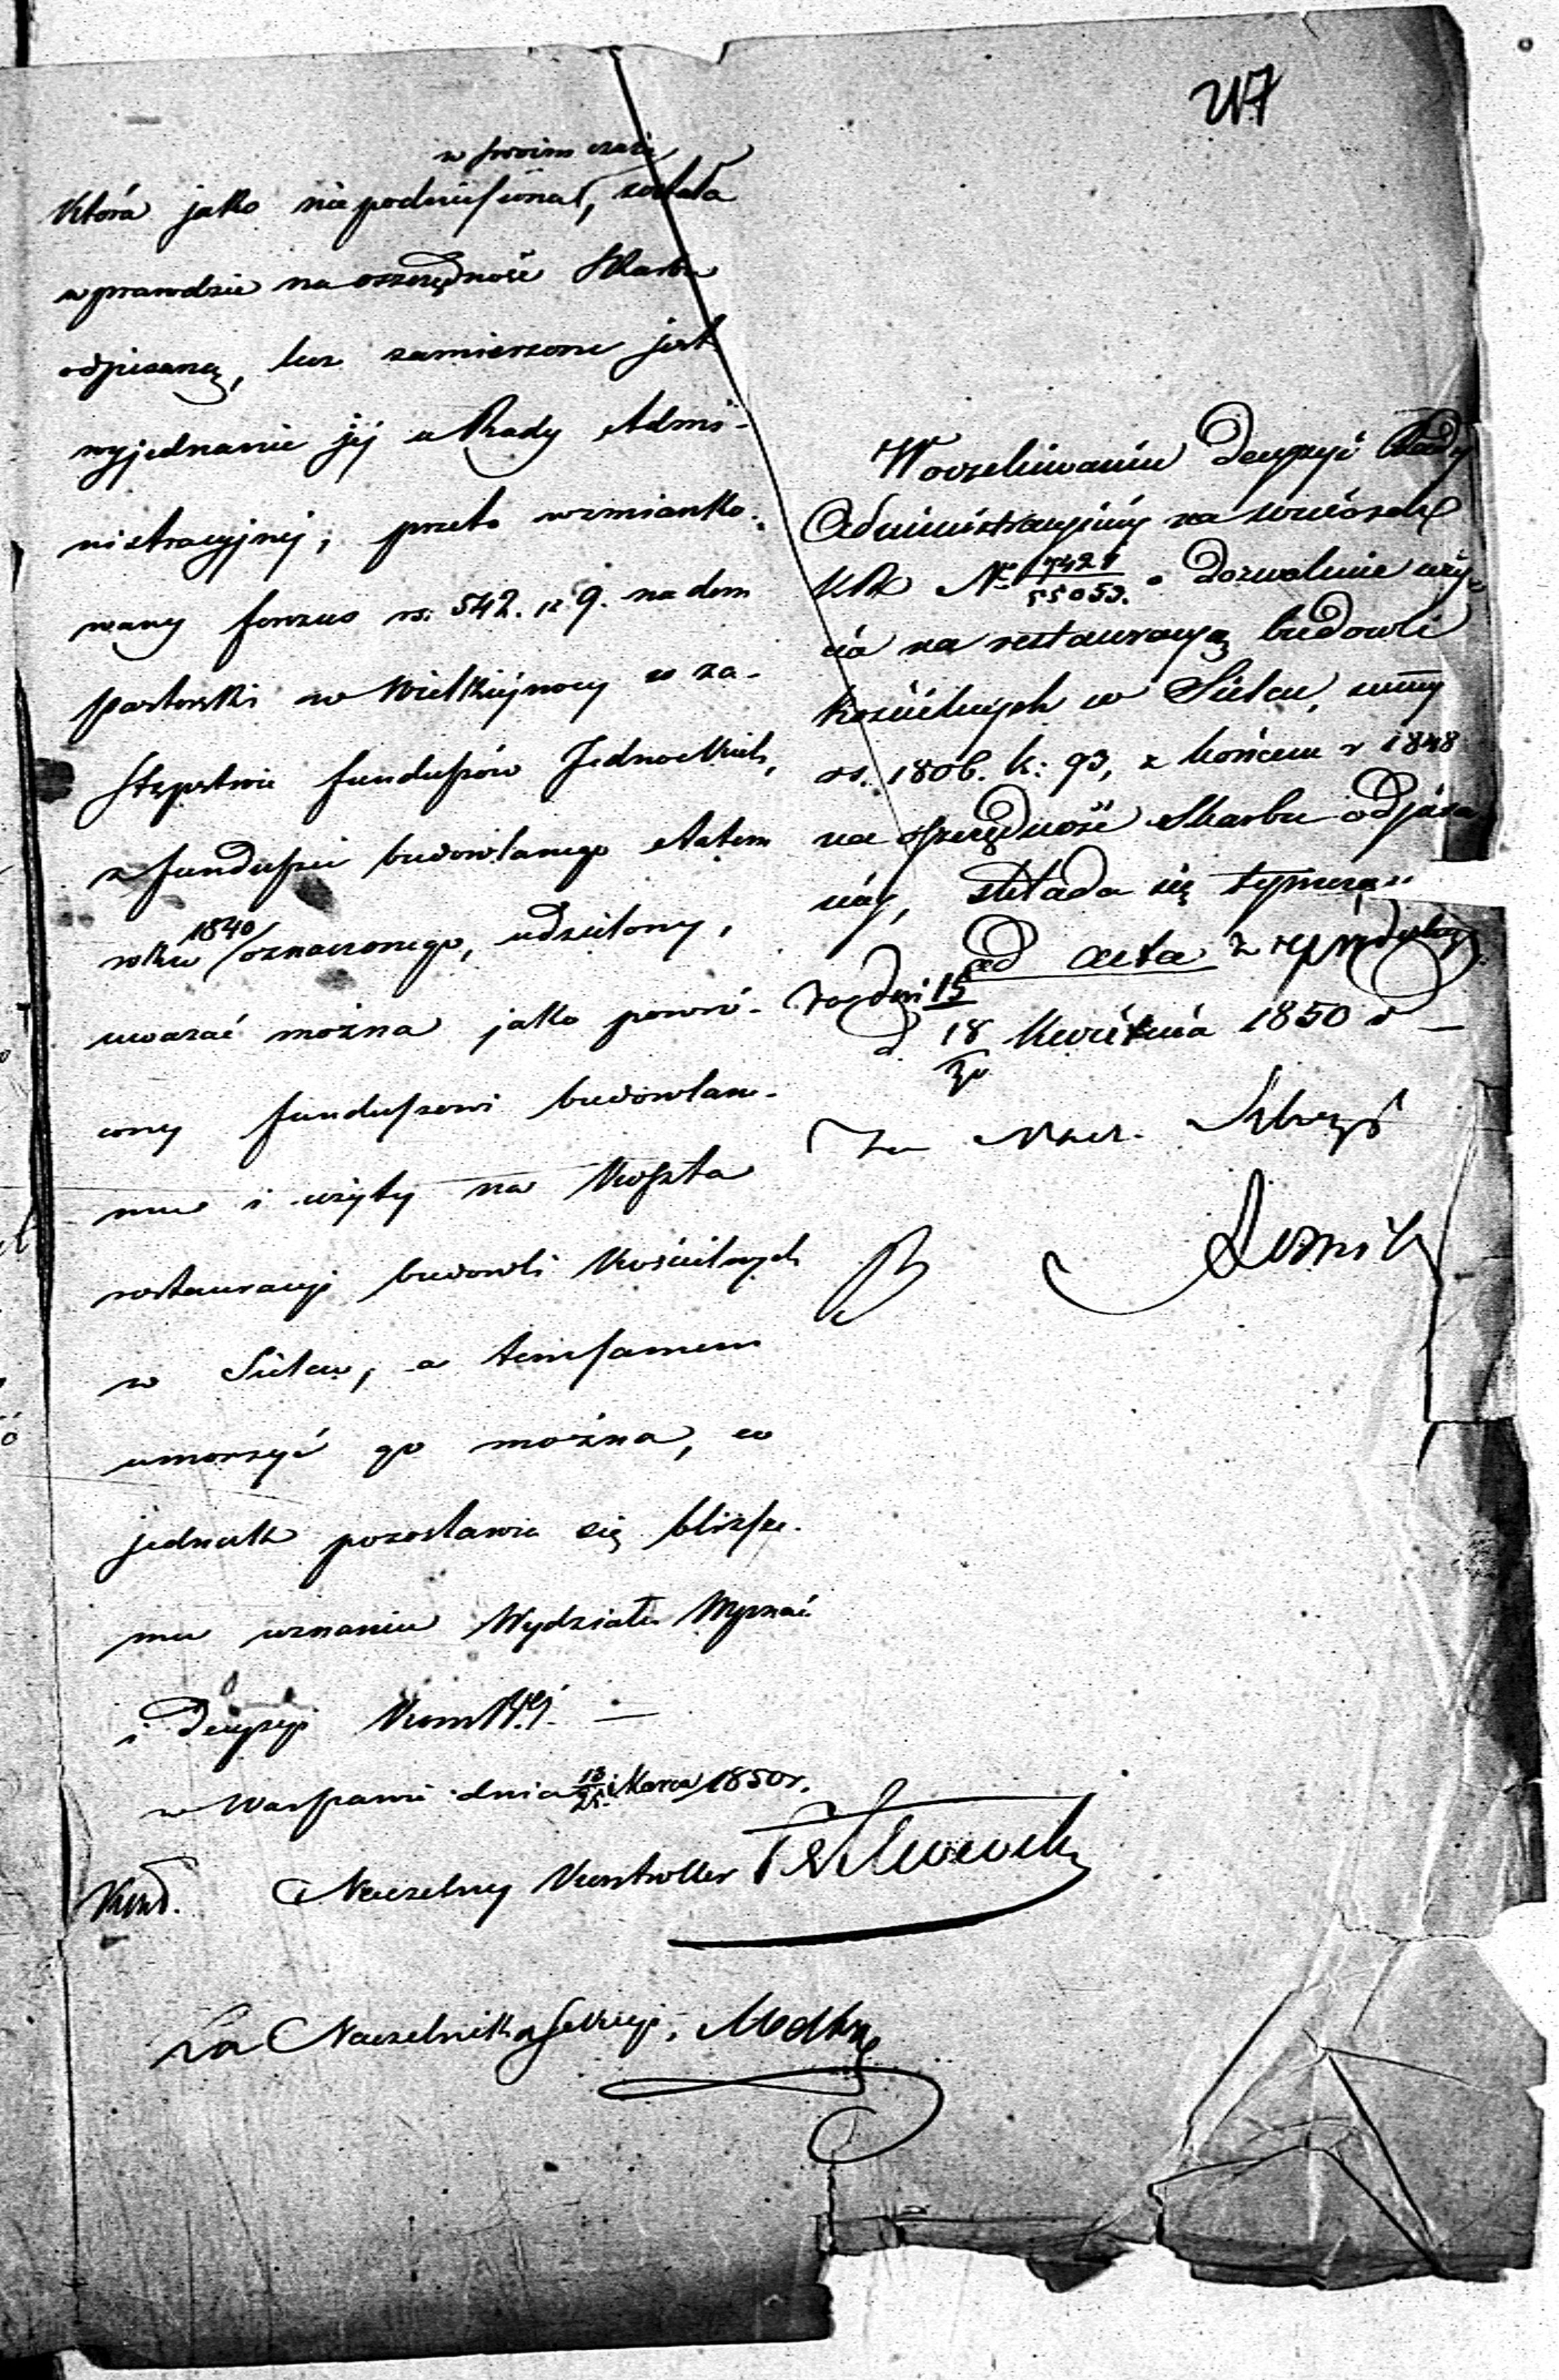 217
w swoim czasie
która jako niepodniesiona, została
wprawdzie na oszczędność Skarbu
odpisaną, lecz zamierzone jest
wyjednanie jéj u Rady Admi-
nistracyjnéj, przeto wzmianko-
wany forszus rs. 542. k 9. na dom
pastorski w Wielkiéjnocy w za-
stępstwie funduszów Jednockich,
z funduszu budowlanego etatem
roku 1840 oznaczonego, udzielony,
uważać można jako powró-
cony funduszowi budowlane-
mu i użyty na koszta
restauracyi budowli kościelnych
w Sielcu, a temsamem
umorzyć go można, co
jednak pozostawia się bliższe-
mu uznaniu Wydziału Wyznań
i Decyzyi
w Warszawie dnia 13/25 Marca 1850 r.
Naczelny Kontroller
Za Naczelnika Sekcyi,
W oczekiwaniu decyzyi Rady
Administracyjnéj na wniosek
KR No 7421/55053. o dozwolenie uży-
cia na restauracyą budowli
kościelnych w Sielcu, summy
rs. 1806. k: 93, z końcem r 1848
na oszczędność Skarbu odpisa
néj, składa się tymczas
ad acta z
18 Kwietnia 1850 r
Za Nacz.